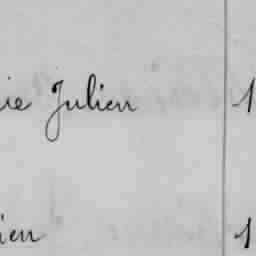 ie Julien 1
ien 1